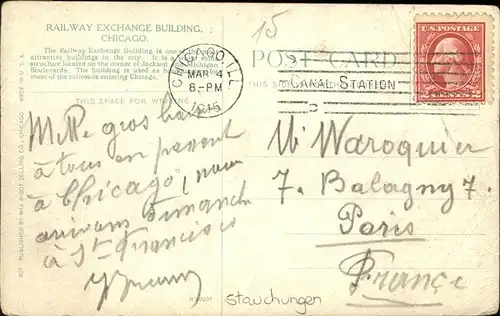 RAILWAY EXCHANGE BUILDING,
CHICAGO.
The Railway Exchange Building is one of the most
attractive buildings in the city. It is a
structure located on the corner of Jackson and Michigan
Boulevards. The building is used as
ment of the railroads entering Chicago.
THIS SPACE FOR WRITING
15
CHICAGO, ILL
MAR 4
8-PM
1916
POST CARD
CANAL STATION
U.S. POSTAGE
2 CENTS 2
Mille gros baisers
à tous en passant
à Chicago, nous
arrivons Dimanche
à St Francisco
M Waroquier
7. Balagny 7.
Paris
France
807 PUBLISHED BY MAX RIGOT SELLING CO., CHICAGO MADE IN U. S. A.
Stauchungen